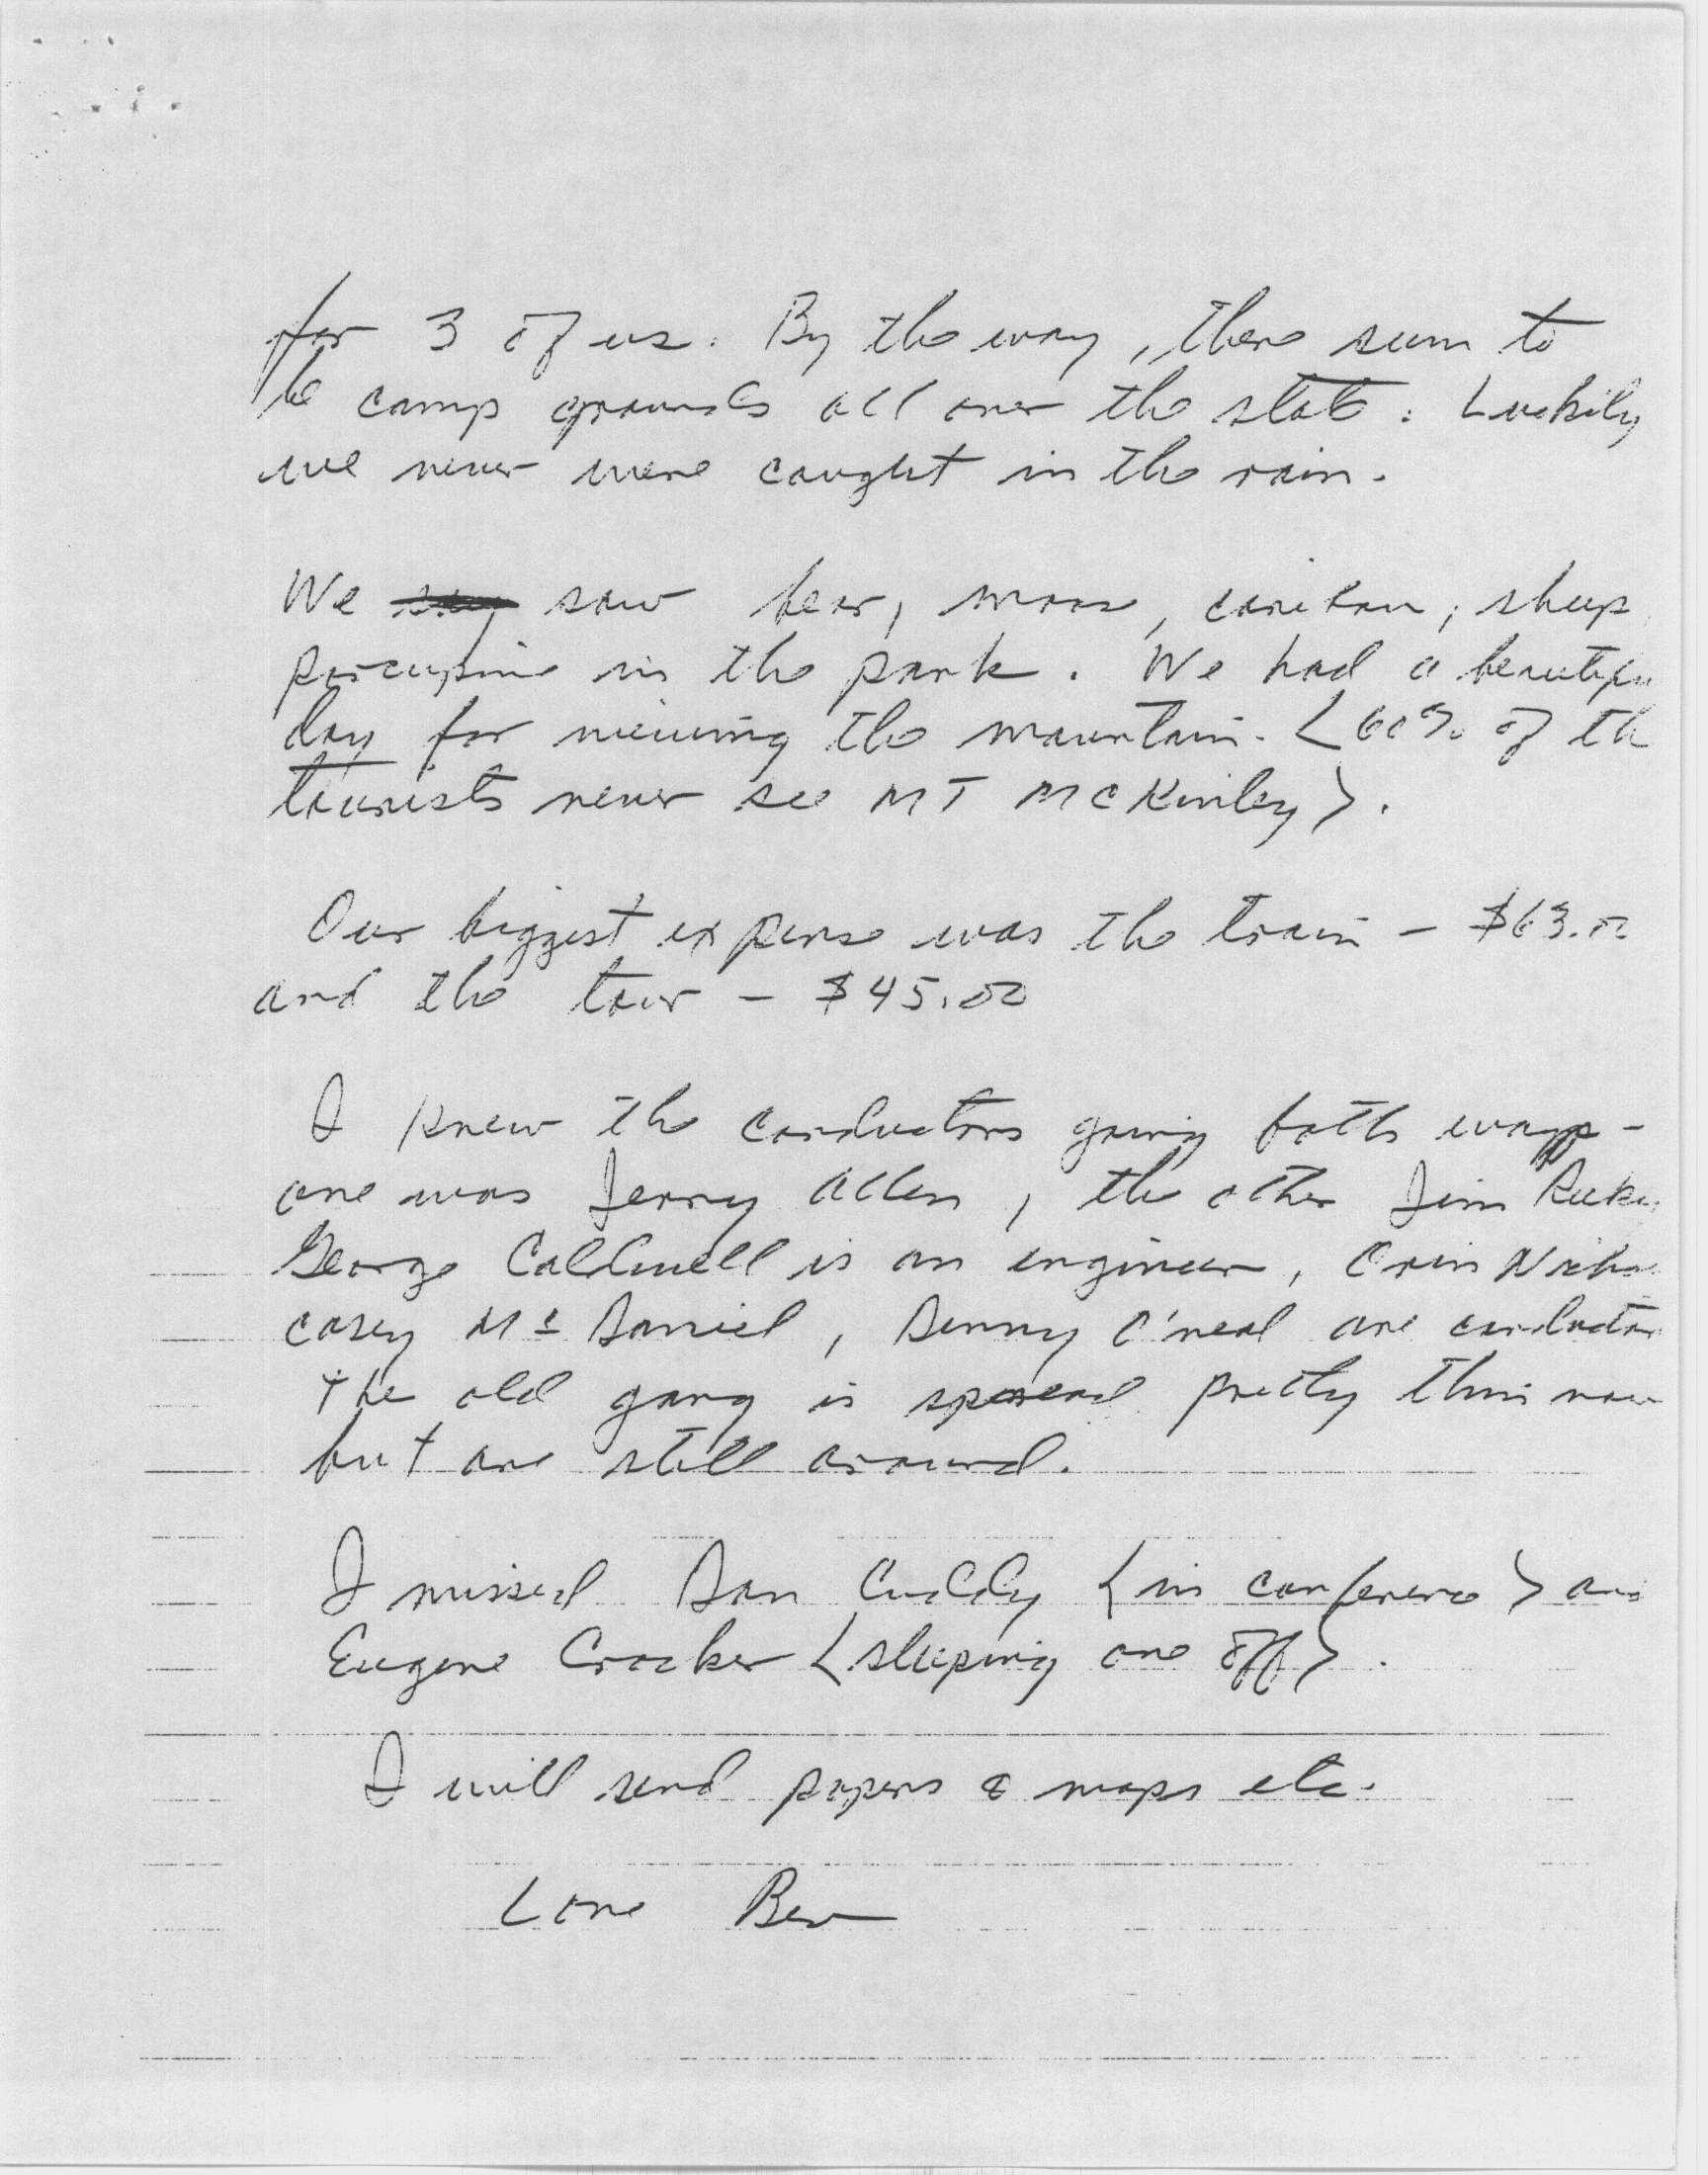 for 3 of us. By the way, there seem to
be camp grounds all over the state. Luckily
we never were caught in the rain.
We saw bear, moose, caribou, sheep
porcupine in the park. We had a beautifu
day for viewing the mountain. <60% of th
tourists never see MT McKinley>.
Our biggest expense was the train - $63.00
and the tour - $45.00
I knew the conductors going both ways -
one was Jerry Allen, the other Jim
George Caldwell is an engineer, Orin
Casey McDaniel, Denny O'neal are conductor
the old gang is spread pretty thin now
but are still around.
I missed Dan Cuddy <in conference> and
Eugene Crocker <sleeping one off>.
I will send papers & maps etc.
Love Bev